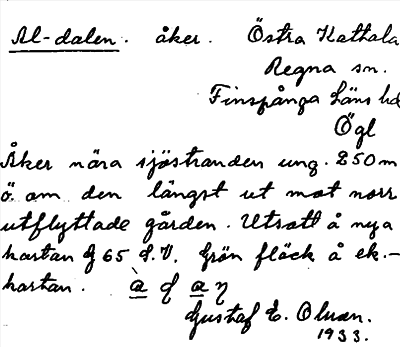 Al-dalen. åker. Östra Kattala
Regna sn.
Finspånga läns hd
Ögl
Åker nära sjöstranden ung. 250 m
ö. om den längst ut mot norr
utflyttade gården. Utsatt å nya
kartan 65 Grön fläck å ek.-
kartan.
Gustaf E. Olsson.
1933.